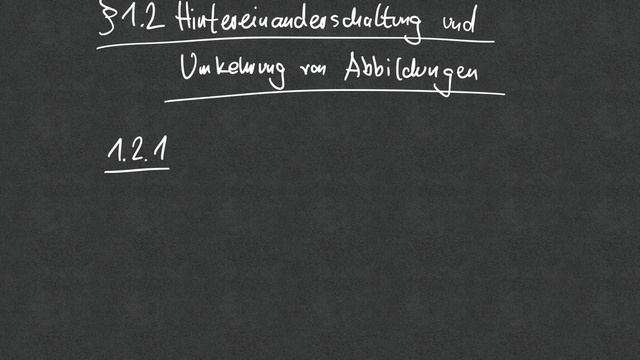 § 1.2 Hintereinanderschaltung und
Umkehrung von Abbildungen
1.2.1